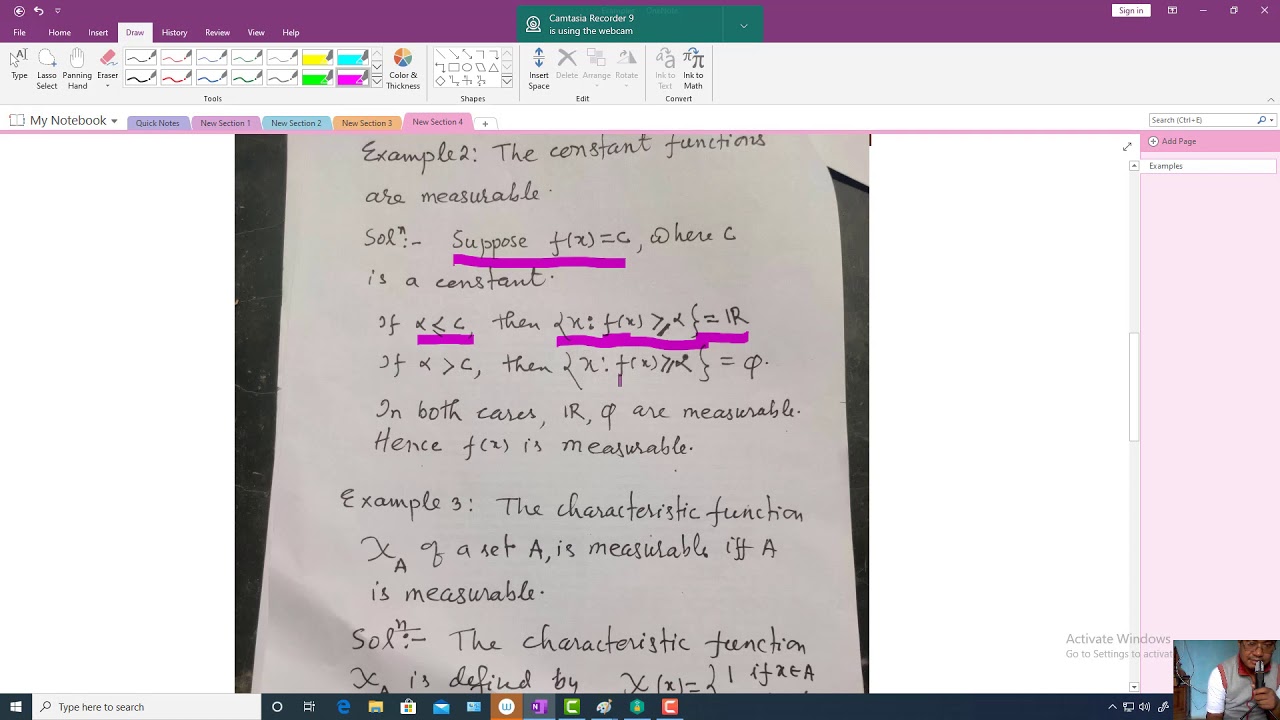 Camtasia Recorder 9
is using the webcam
Sign in
File Home Insert Draw History Review View Help
Type Lasso Select Panning Hand Eraser
Color & Thickness
Insert Space Delete Arrange Rotate Ink to Text Ink to Math
Tools Shapes Edit Convert
My Notebook Quick Notes New Section 1 New Section 2 New Section 3 New Section 4
Search (Ctrl+E)
Add Page
Examples
Example 2: The constant functions
are measurable.
Solⁿ:- Suppose f(x)=c, where c
is a constant.
If α ≤ c, then {x: f(x) ≥ α} = IR
If α > c, then {x: f(x) ≥ α} = φ.
In both cases, IR, φ are measurable.
Hence f(x) is measurable.
Example 3: The characteristic function
χ_A of a set A, is measurable iff A
is measurable.
Solⁿ:- The characteristic function
χ_A is defined by χ(x)= { 1 if x∈A
Activate Windows
Go to Settings to activat
Type here to search